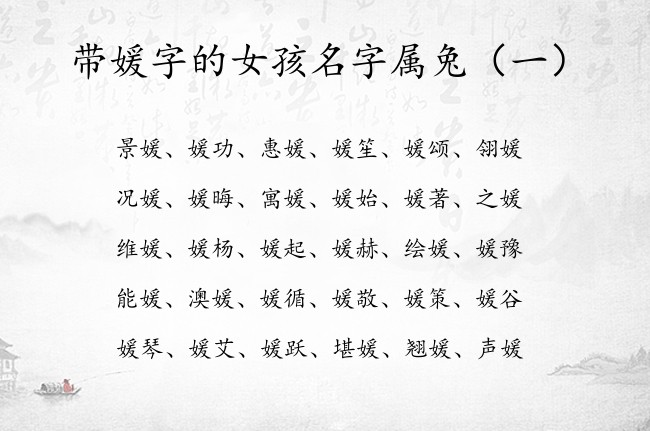 带媛字的女孩名字属兔（一）
景媛、媛功、惠媛、媛笙、媛颂、翎媛
况媛、媛晦、寓媛、媛始、媛著、之媛
维媛、媛杨、媛起、媛赫、绘媛、媛豫
能媛、澳媛、媛循、媛敬、媛策、媛谷
媛琴、媛艾、媛跃、堪媛、翘媛、声媛